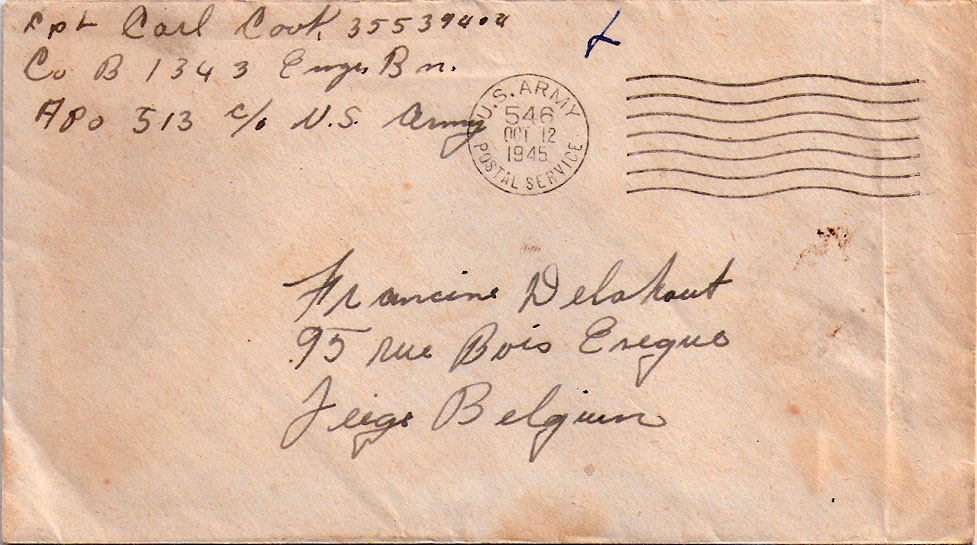 Cpl Carl Cook, 35539404
Co B 1343 Engr Bn.
APO 513 c/o U.S. Army
U.S. ARMY
546
OCT 12
1945
POSTAL SERVICE
Francine Delahaut
95 rue Bois Eveque
Leige Belgium